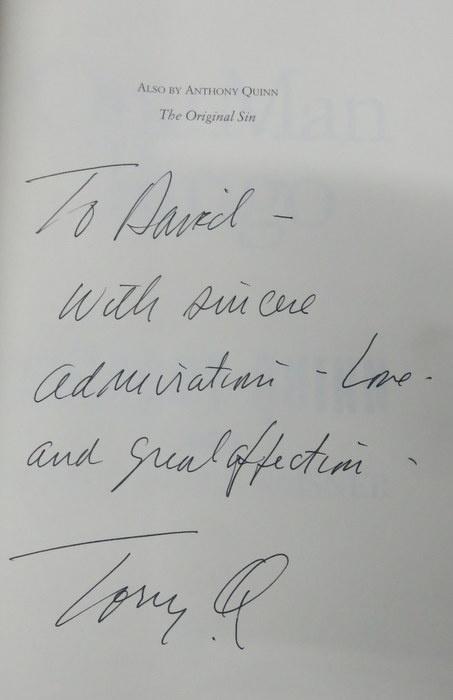 ALSO BY ANTHONY QUINN
The Original Sin
To David -
With sincere
admiration - Love -
and great affection -
Tony Q